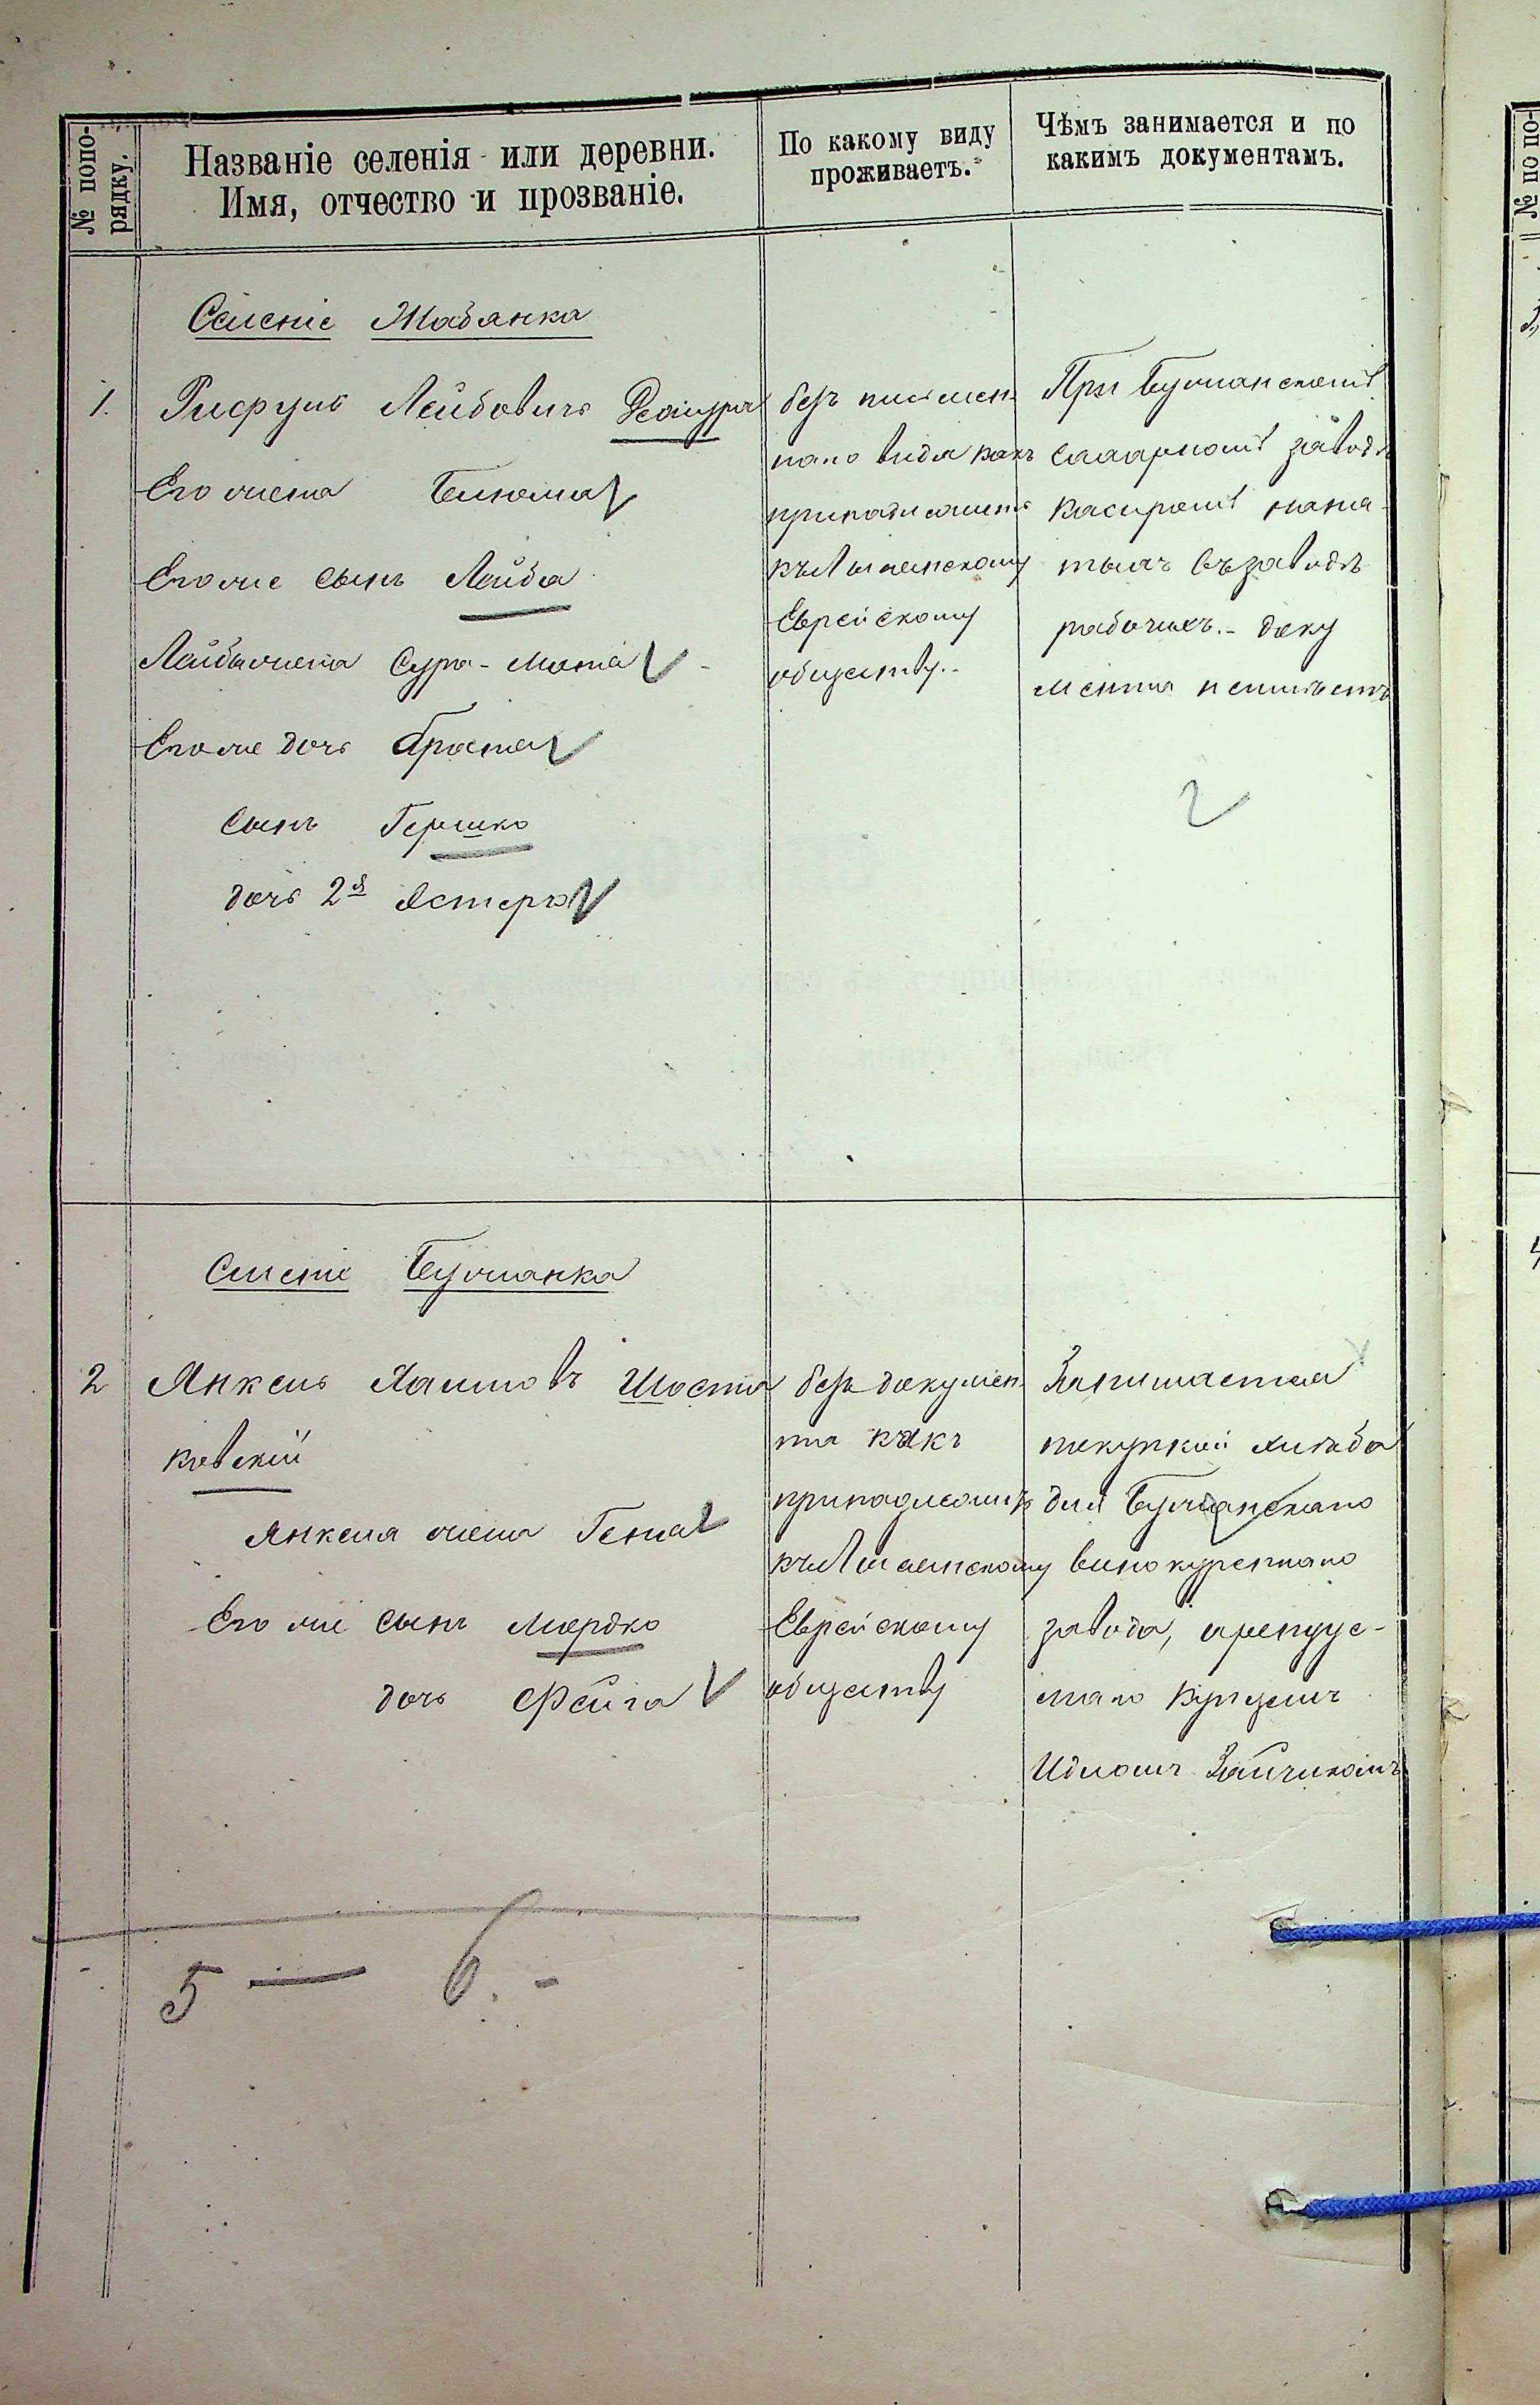 № попо-
рядку.
Названіе селенія или деревни.
Имя, отчество и прозваніе.
По какому виду
проживаетъ.
Чѣмъ занимается и по
какимъ документамъ.
Селеніе Жабянка
1.
Лейбовичъ
Его жена
Его же сынъ Лейба
Лейбы жена Сура-
Его же дочь
сынъ Гершко
дочь 2я Эстеръ
безъ письмен-
наго вида какъ
принадлежитъ
къ Лысянскому
Еврейскому
обществу.
При Бужанскомъ
сахарномъ заводѣ
касиромъ наня-
тыхъ въ заводѣ
рабочихъ. - доку
мента неимѣетъ
Селеніе Бужанка
2
Янкель Хаимовъ Шоста
ковскій
Янкеля жена Геня
Его же сынъ Мордко
дочь Фейга
безъ докумен-
та какъ
принадлежитъ
къ Лысянскому
Еврейскому
обществу
Занимается
покупкой хлѣба
для Бужанскаго
винокуреннаго
завода, арендуе-
маго купцемъ
Зайчикомъ
5 — 6. -
№ по по-